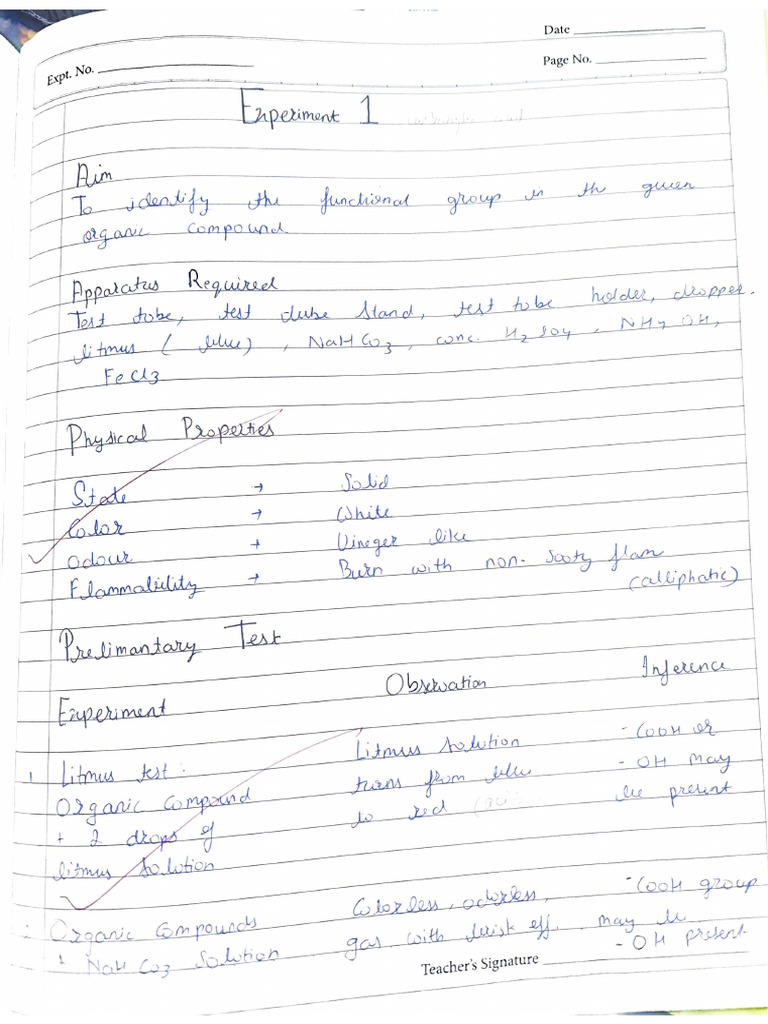 Date
Expt. No.
Page No.
Experiment 1
Aim
To identify the functional group in the given
organic compound
Apparatus Required
Test tobe, test dube stand, test tobe holder, dropper.
litmus (blue), NaHCO3, conc. H2SO4, NH4OH,
FeCl3
Physical Properties
State → Solid
Color → White
Odour → Vineger like
Flammability → Burn with non-sooty flam
(alliphatic)
Prelimantary Test
Experiment Observation Inference
1 Litmus test: Litmus solution -COOH or
Organic compound turns from blue -OH may
+ 2 drops of to red be present
litmus solution
Organic compounds Colorless, odorless, -COOH group
+ NaHCO3 solution gas with brisk eff. may be
-OH present
Teacher's Signature